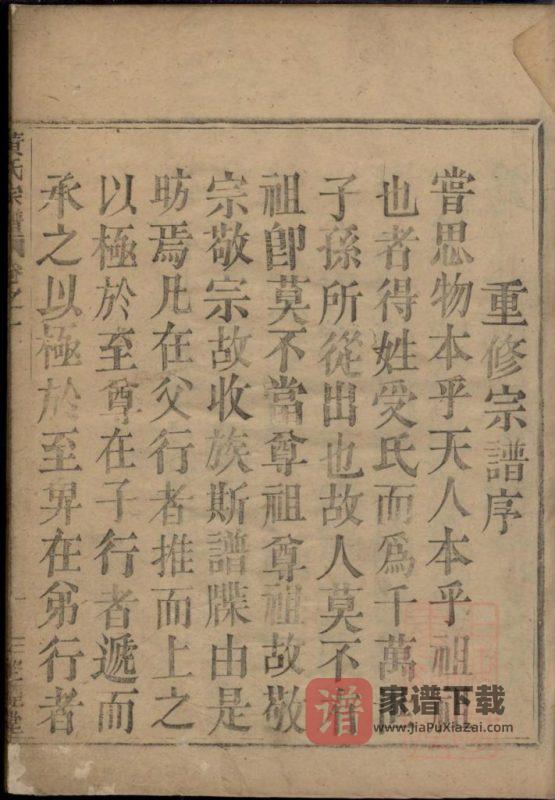 重修宗譜序
嘗思物本乎天人本乎祖
也者得姓受氏而爲千萬世
子孫所從出也故人莫不有
祖卽莫不當尊祖尊祖故敬
宗敬宗故收族斯譜牒由是
昉焉凡在父行者推而上之
以極於至尊在子行者遞而
承之以極於至畀在弟行者
黃氏宗譜 卷之一
堂
譜
家谱下载
www.JiaPuXiaZai.com